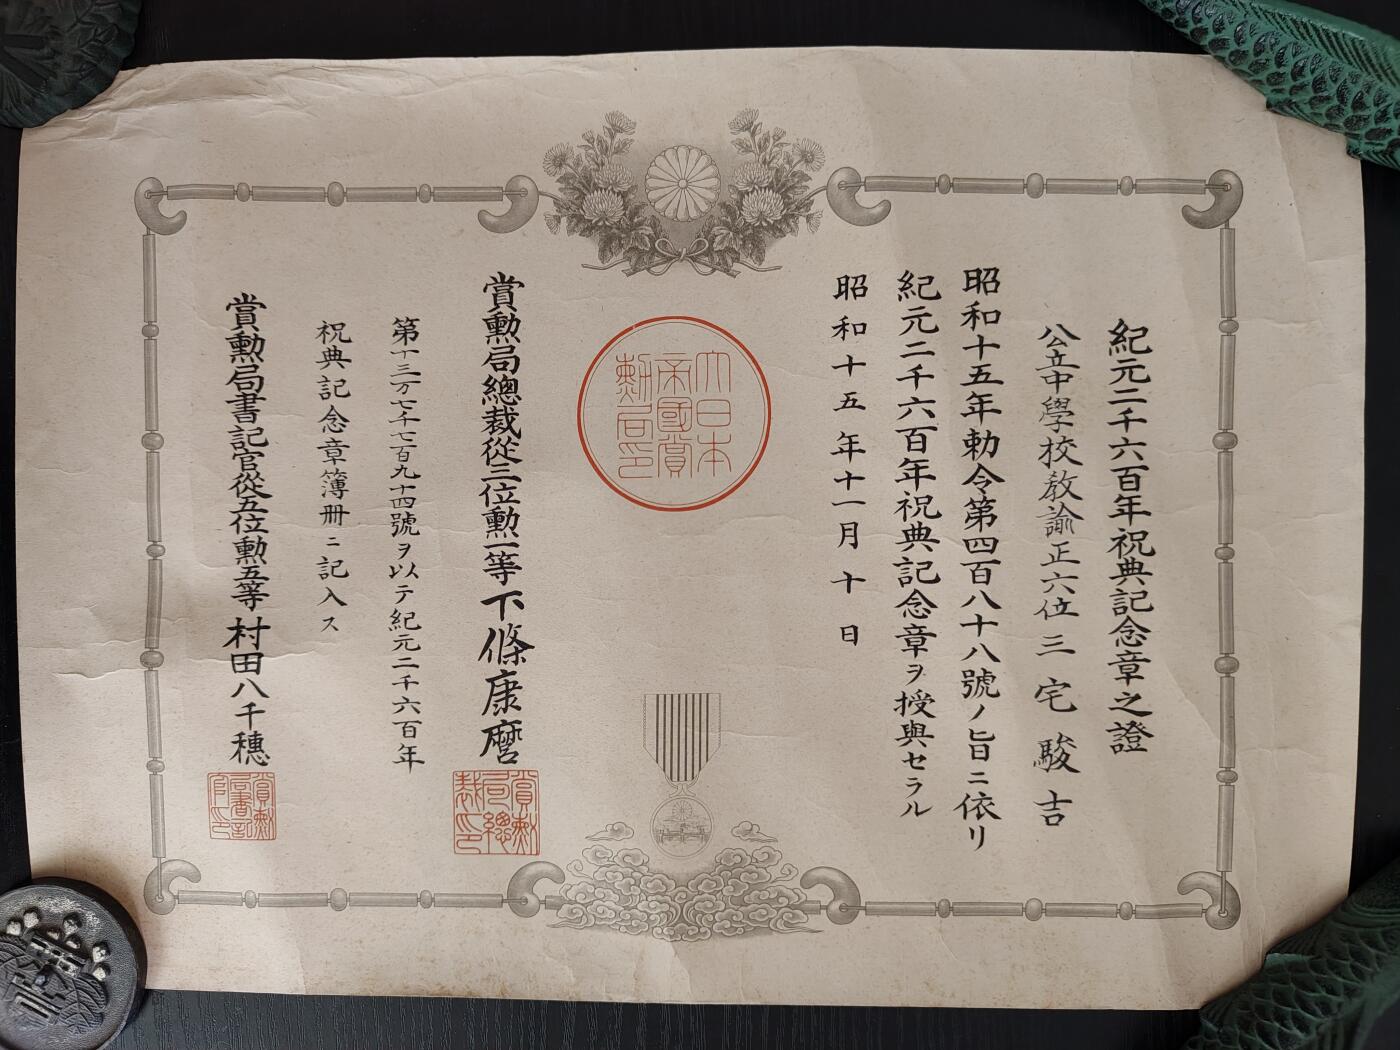 紀元二千六百年祝典記念章之證
公立中學校敎諭正六位三宅駿吉
昭和十五年勅令第四百八十八號ノ旨ニ依リ
紀元二千六百年祝典記念章ヲ授與セラル
昭和十五年十一月十日
大日本
帝國賞
勲局印
賞勲局總裁從三位勲一等下條康麿
賞勲
局總
裁印
第十三万七千七百九十四號ヲ以テ紀元二千六百年
祝典記念章簿冊ニ記入ス
賞勲局書記官從五位勲五等村田八千穗
賞勲
局書記
官印